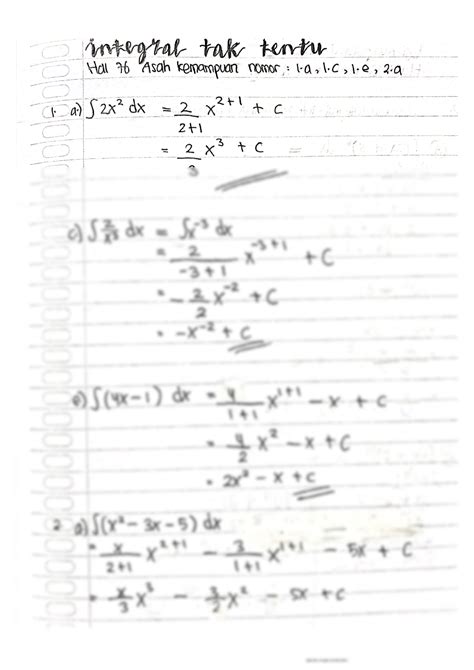 integral tak tentu
Hal 76 Asah kemampuan nomor : 1.a, 1.c, 1.e, 2.a
1. a.) ∫2x² dx = 2/(2+1) x²⁺¹ + C
= 2/3 x³ + C
c) ∫2/x³ dx = ∫x⁻³ dx
= 2/(-3+1) x⁻³⁺¹ + C
= -2/2 x⁻² + C
= -x⁻² + C
e) ∫(4x-1) dx = 4/(1+1) x¹⁺¹ - x + C
= 4/2 x² - x + C
= 2x² - x + C
2 a) ∫(x² - 3x - 5) dx
= x/(2+1) x²⁺¹ - 3/(1+1) x¹⁺¹ - 5x + C
= x/3 x³ - 3/2 x² - 5x + C